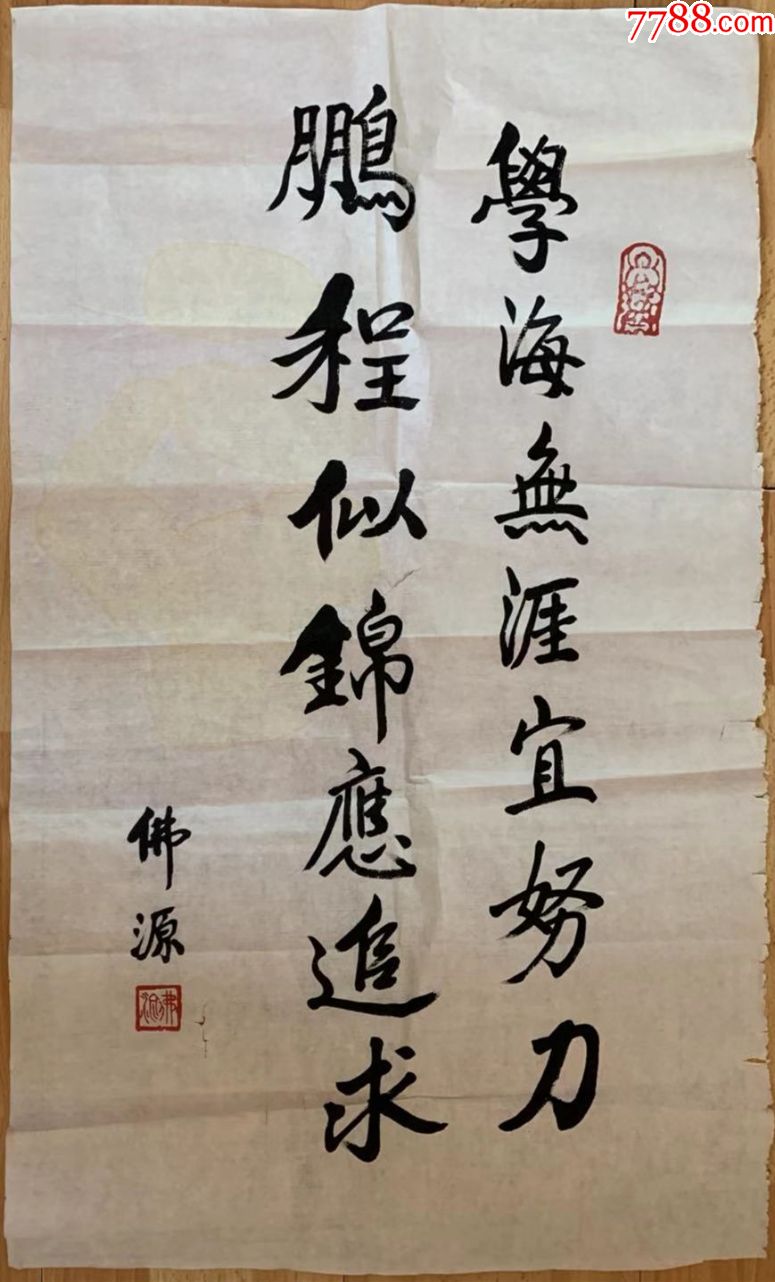 7788.com
學海無涯宜努力
鵬程似錦應追求
佛源